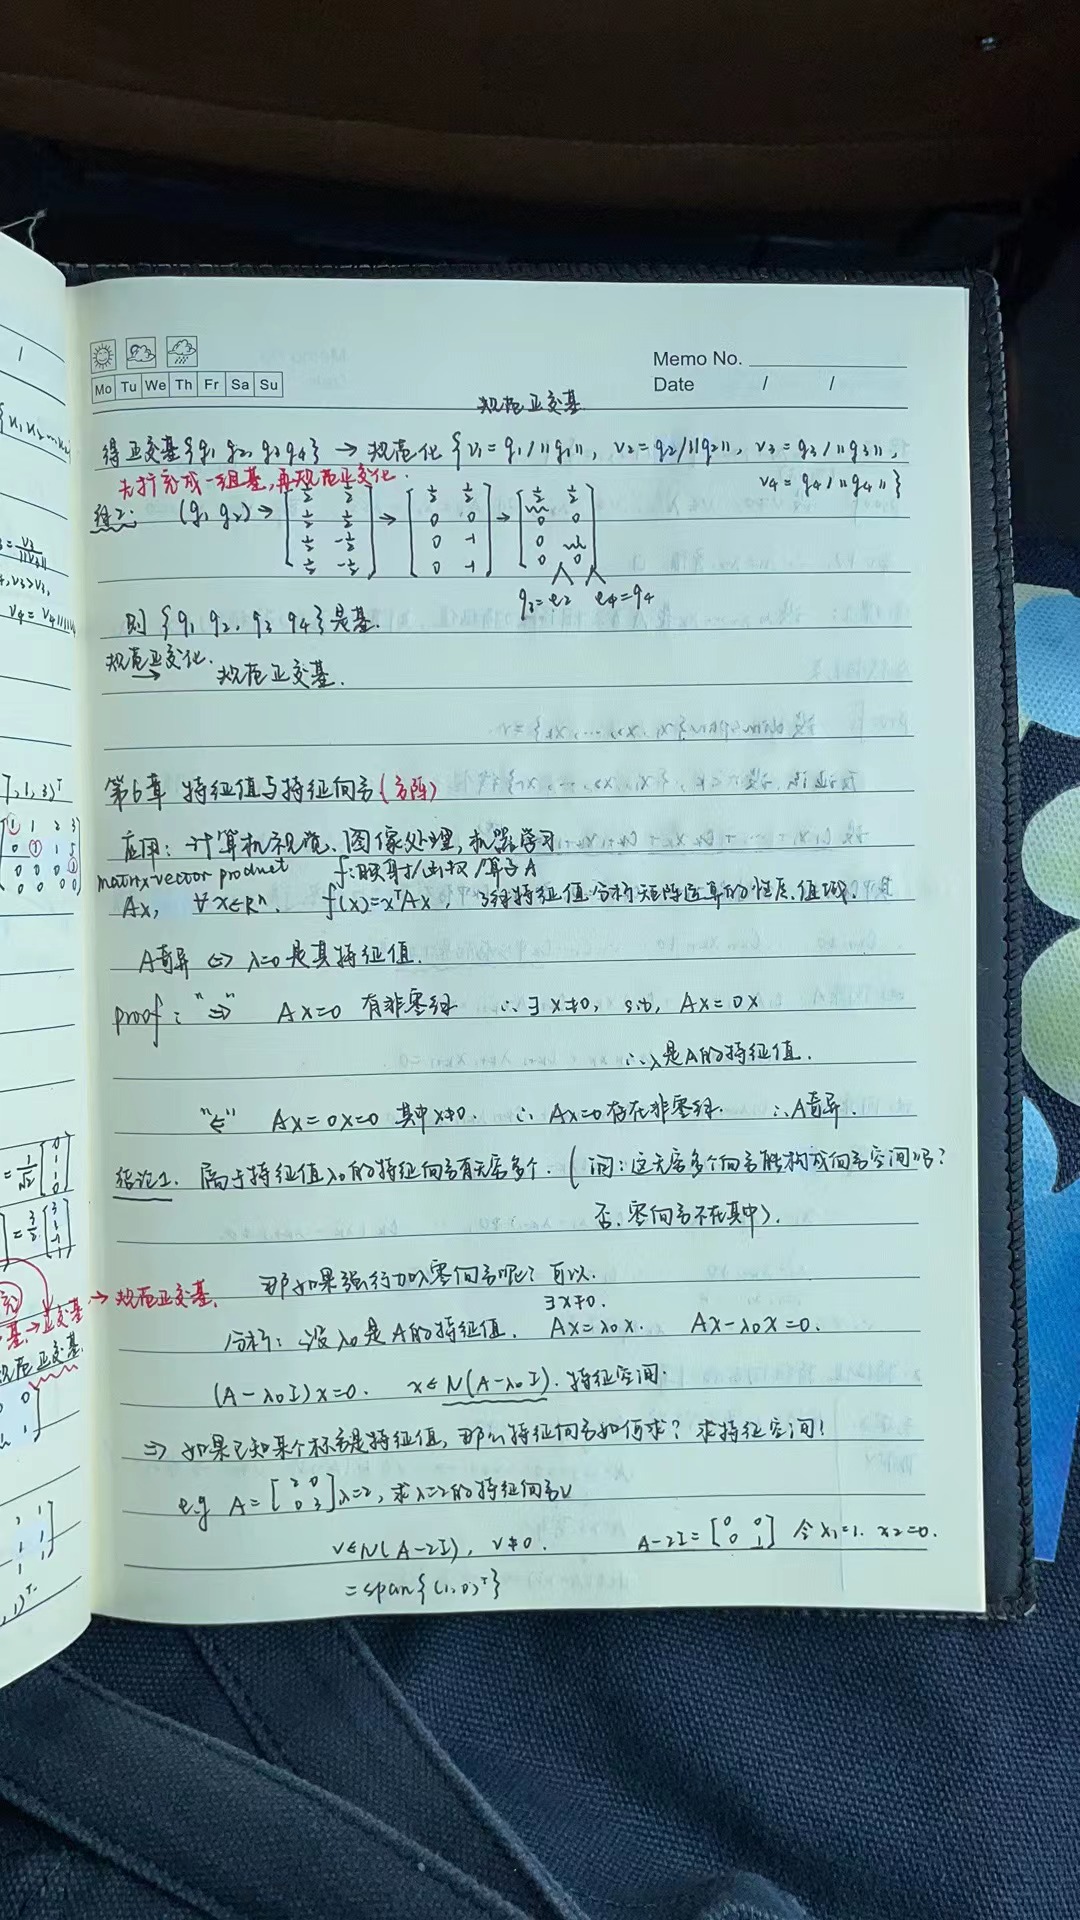 Memo No.
Mo Tu We Th Fr Sa Su
Date / /
规范正交基
得正交基{q₁ q₂, q₃ q₄} → 规范化 {v₁ = q₁/||q₁||, v₂ = q₂/||q₂||, v₃ = q₃/||q₃||,
v₄ = q₄/||q₄||}
先扩充成一组基,再规范正交化.
(q₁ q₂) → [½ ½; ½ ½; ½ -½; ½ -½] → [½ ½; 0 0; 0 -1; 0 -1] → [½ ½; 0 0; 0; 0 0]
q₃=e₂ e₄=q₄
则 {q₁ q₂, q₃ q₄} 是基.
规范正交化. → 规范正交基.
第6章 特征值与特征向量(方阵)
应用: 计算机视觉、图像处理, 机器学习
matrix-vector product f:映射/函数/算子A
Ax, ∀x∈Rⁿ. f(x)=xᵀAx, 特征值分析矩阵运算的性质、值域.
A奇异 ⇔ λ=0 是其特征值.
proof: "⇒" Ax=0 有非零解 ∴∃x≠0, s.t, Ax=0x
∴λ是A的特征值.
"⇐" Ax=0x=0 其中x≠0. ∴ Ax=0存在非零解. ∴A奇异.
结论1. 属于特征值λ₀的特征向量有无穷多个. (问:这无穷多个向量能构成向量空间吗?
否.零向量不在其中).
那如果强行加入零向量呢? 可以.
分析: 设λ₀是A的特征值. ∃x≠0. Ax=λ₀x. Ax-λ₀x=0.
(A-λ₀I)x=0. x∈N(A-λ₀I). 特征空间.
⇒ 如果已知某个标量是特征值, 那么特征向量如何求? 求特征空间!
e.g A=[2 0; 0 3] λ=2, 求λ=2的特征向量v
v∈N(A-2I), v≠0. A-2I=[0 0; 0 1] 令x₁=1. x₂=0.
=span{(1,0)ᵀ}
→ 规范正交基.
基→正交基
规范正交基.